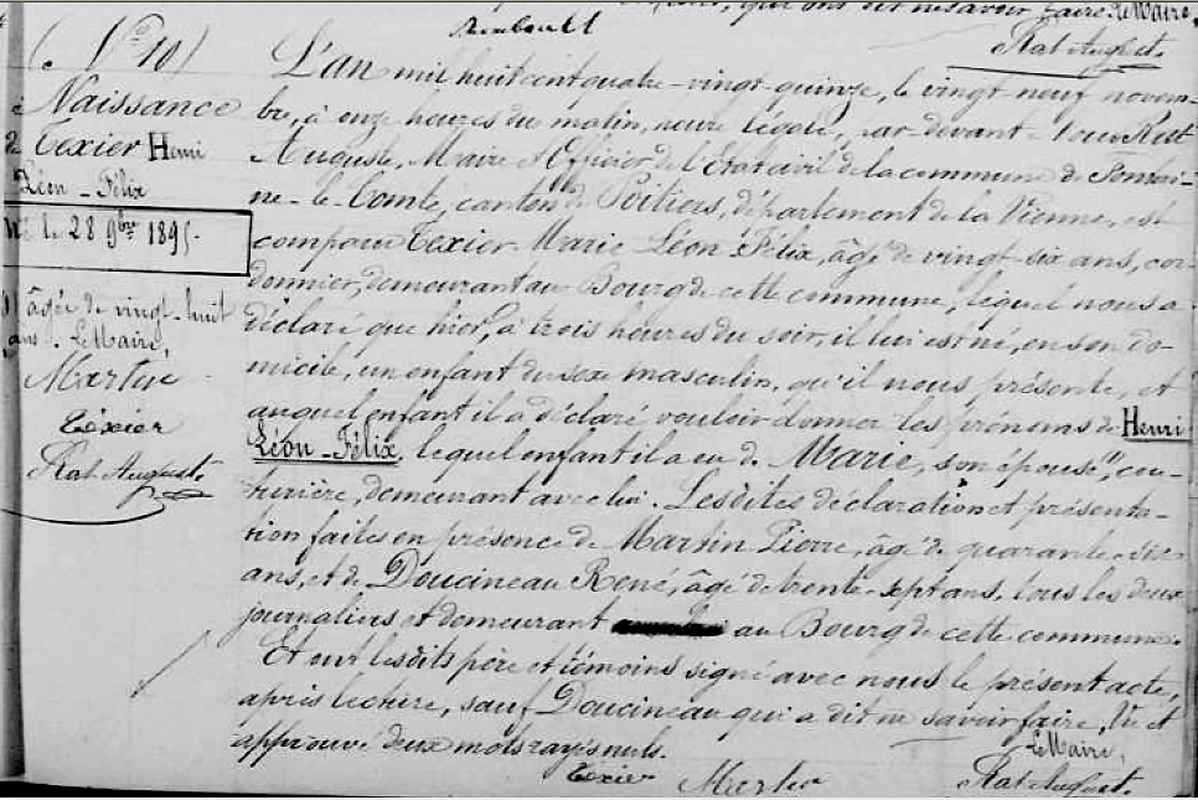 qui ont dit ne savoir faire. Le Maire,
Rat Auguste
(N° 10)
Naissance
de Texier Henri
Léon-Félix
Né le 28 9bre 1895.
(1) âgée de vingt-huit
ans. Le Maire,
Martin
Texier
Rat Auguste
L'an mil huit cent quatre-vingt-quinze, le vingt-neuf novem-
bre, à onze heures du matin, heure légale, par-devant Nous Rat
Auguste, Maire et Officier de l'État civil de la commune de Fontai-
ne-le-Comte, canton de Poitiers, département de la Vienne, est
comparu Texier Marie Léon Félix, âgé de vingt-six ans, cor-
donnier, demeurant au Bourg de cette commune, lequel nous a
déclaré que hier, à trois heures du soir, il lui est né, en son do-
micile, un enfant du sexe masculin, qu'il nous présente, et
auquel enfant il a déclaré vouloir donner les prénoms de Henri
Léon-Félix, lequel enfant il a eu de Marie, son épouse (1), cou-
turière, demeurant avec lui. Lesdites déclaration et présenta-
tion faites en présence de Martin Pierre, âgé de quarante-six
ans, et de Doucineau René, âgé de trente-sept ans, tous les deux
journaliers et demeurant au Bourg de cette commune.
Et ont lesdits père et témoins signé avec nous le présent acte,
après lecture, sauf Doucineau qui a dit ne savoir faire. Vu et
approuvé deux mots rayés nuls.
Le Maire,
Texier Martin Rat Auguste